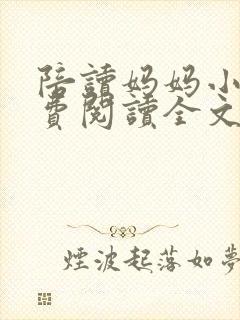 陪讀妈妈小
費閱讀全文
煙波起落如夢